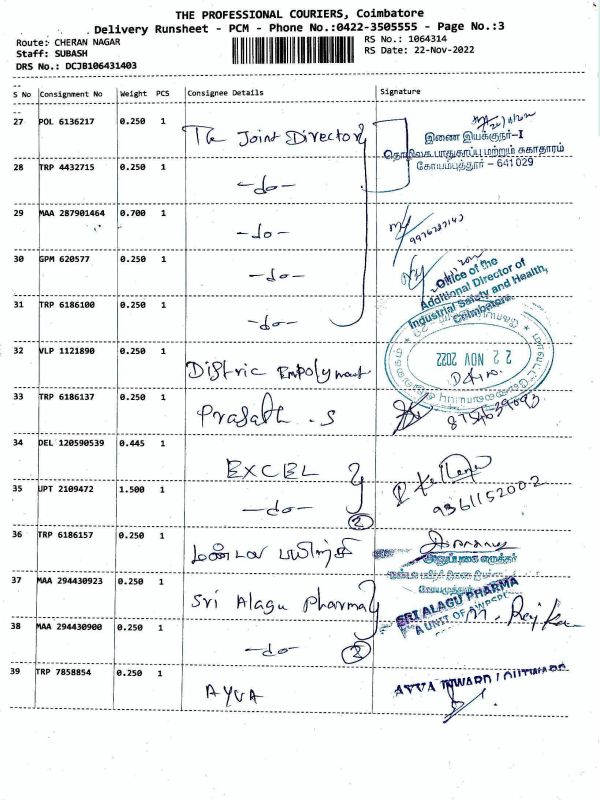 THE PROFESSIONAL COURIERS, Coimbatore
Delivery Runsheet - PCM - Phone No.:0422-3505555 - Page No.:3
Route: CHERAN NAGAR
Staff: SUBASH
DRS No.: DCJB106431403
RS No.: 1064314
RS Date: 22-Nov-2022
S No Consignment No Weight PCS Consignee Details Signature
27 POL 6136217 0.250 1 The Joint Director
இணை இயக்குநர்-I
தொழிலக பாதுகாப்பு மற்றும் சுகாதாரம்
கோயம்புத்தூர் - 641029
28 TRP 4432715 0.250 1 -do-
29 MAA 287901464 0.700 1 -do-
30 GPM 620577 0.250 1 -do-
Office of the
Additional Director of
Industrial Safety and Health,
Coimbatore.
31 TRP 6186100 0.250 1 -do-
32 VLP 1121890 0.250 1 Distric Empolyment
22 NOV 2022
33 TRP 6186137 0.250 1 Prasath. S
34 DEL 120590539 0.445 1 EXCEL
35 UPT 2109472 1.500 1 -do- 2
9361152002
36 TRP 6186157 0.250 1 மண்டல பயிற்சி
37 MAA 294430923 0.250 1 Sri Alagu Pharma
SRI ALAGU PHARMA
A UNIT OF
38 MAA 294430900 0.250 1 -do- 2
39 TRP 7858854 0.250 1 AYVA
AYVA INWARD / OUTWARD